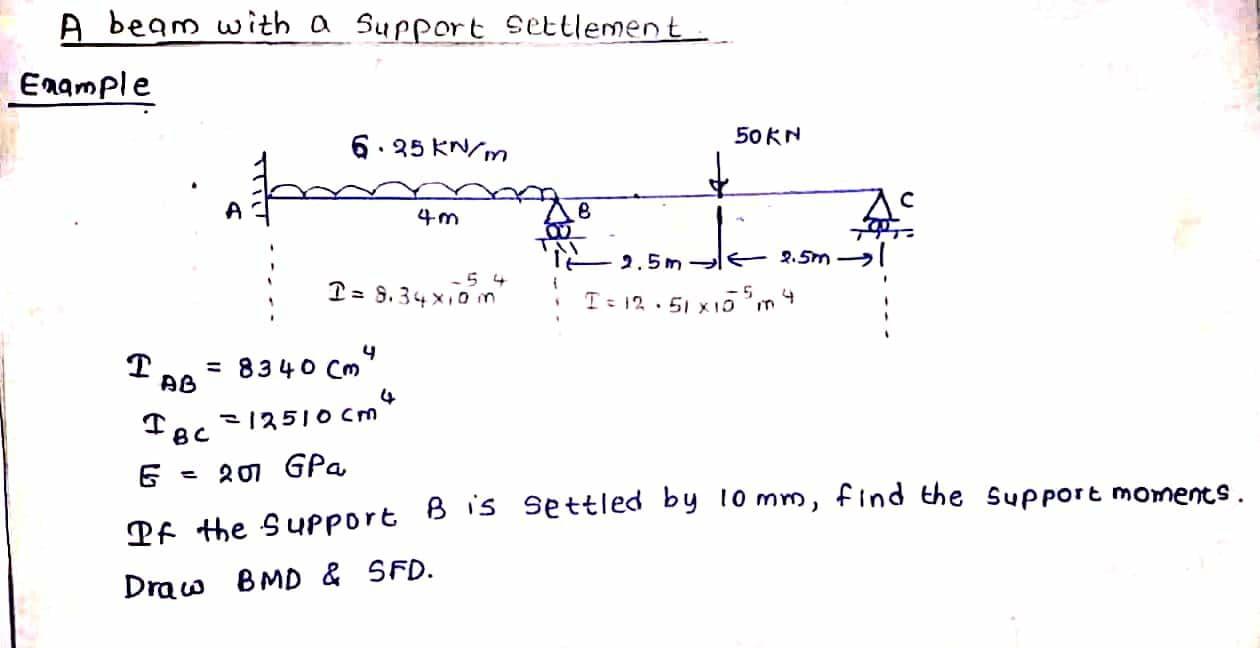 A beam with a support settlement.
Example
6.25 KN/m
50KN
A
4m
B
C
2.5m
2.5m
I = 8.34x10⁻⁵ m⁴
I = 12.51 x10⁻⁵ m⁴
I AB = 8340 cm⁴
I BC = 12510 cm⁴
E = 207 GPa
If the support B is settled by 10 mm, find the support moments.
Draw BMD & SFD.